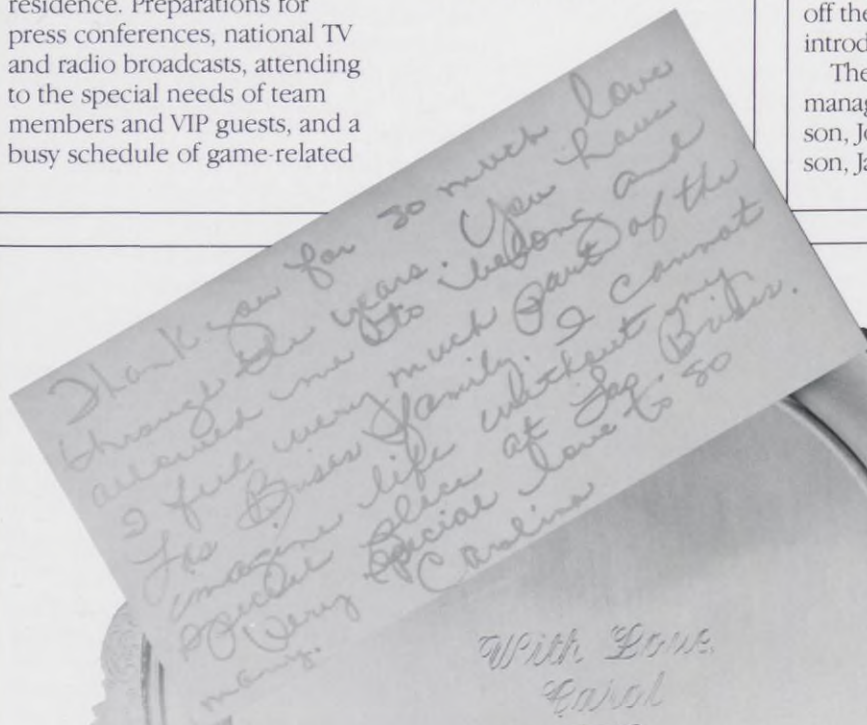 residence. Preparations for
press conferences, national TV
and radio broadcasts, attending
to the special needs of team
members and VIP guests, and a
busy schedule of game-related
off the
introd
The
manag
son, Jo
son, Ja
Thank you for so much love
through the years. You have
allowed me to belong and
I feel very much part of the
Las Brisas family. I cannot
imagine life without my
special place at Las Brisas.
Very special love to so
many. Carolina
With Love
Carol